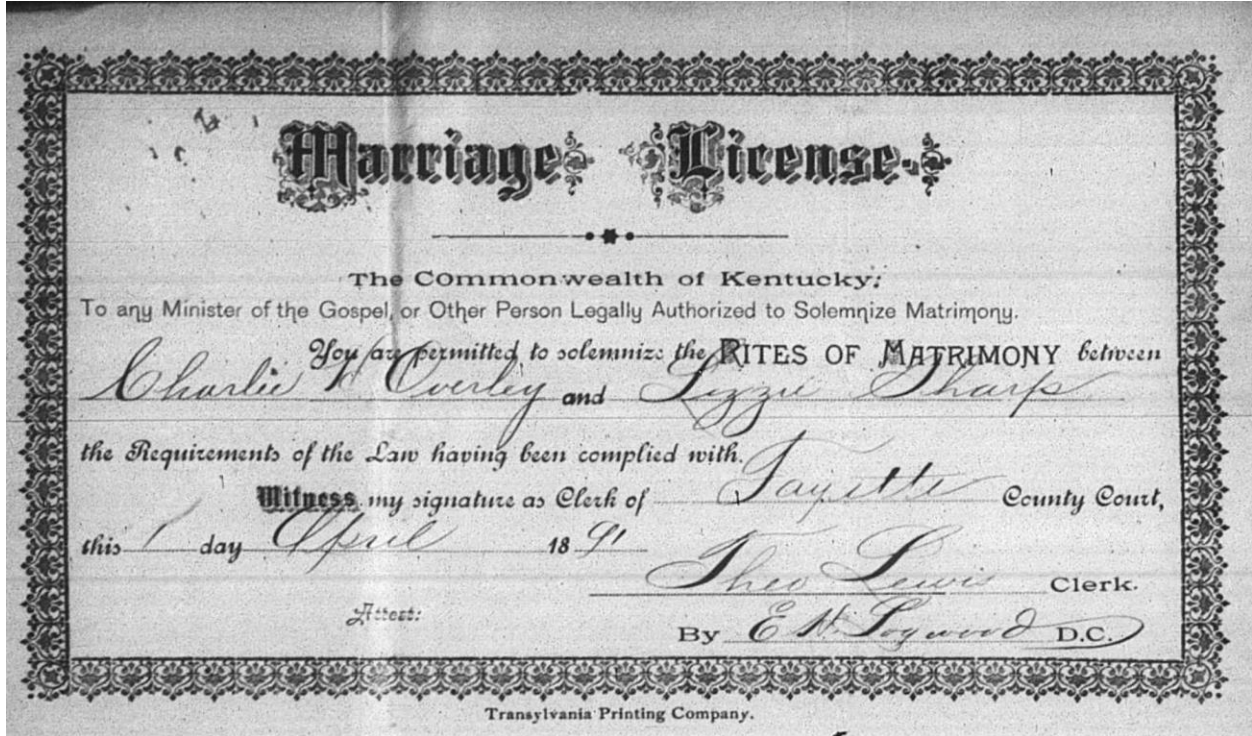 Marriage License.
The Commonwealth of Kentucky:
To any Minister of the Gospel, or Other Person Legally Authorized to Solemnize Matrimony.
You are permitted to solemnize the RITES OF MATRIMONY between
Charlie Overley and Lizzie Sharp
the Requirements of the Law having been complied with.
Witness my signature as Clerk of Fayette County Court,
this 1 day April 1891
Theo Lewis Clerk.
Attest:
By E N. Logwood D.C.
Transylvania Printing Company.